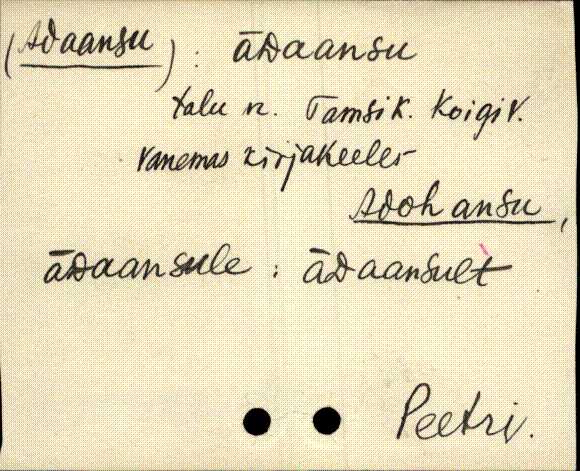 (Adaansu): āᴅaansu
talu n. Tamsik. Koigi v.
vanemas kirjakeeles
Adohansu,
āᴅaansule : āᴅaansult
Peetri.